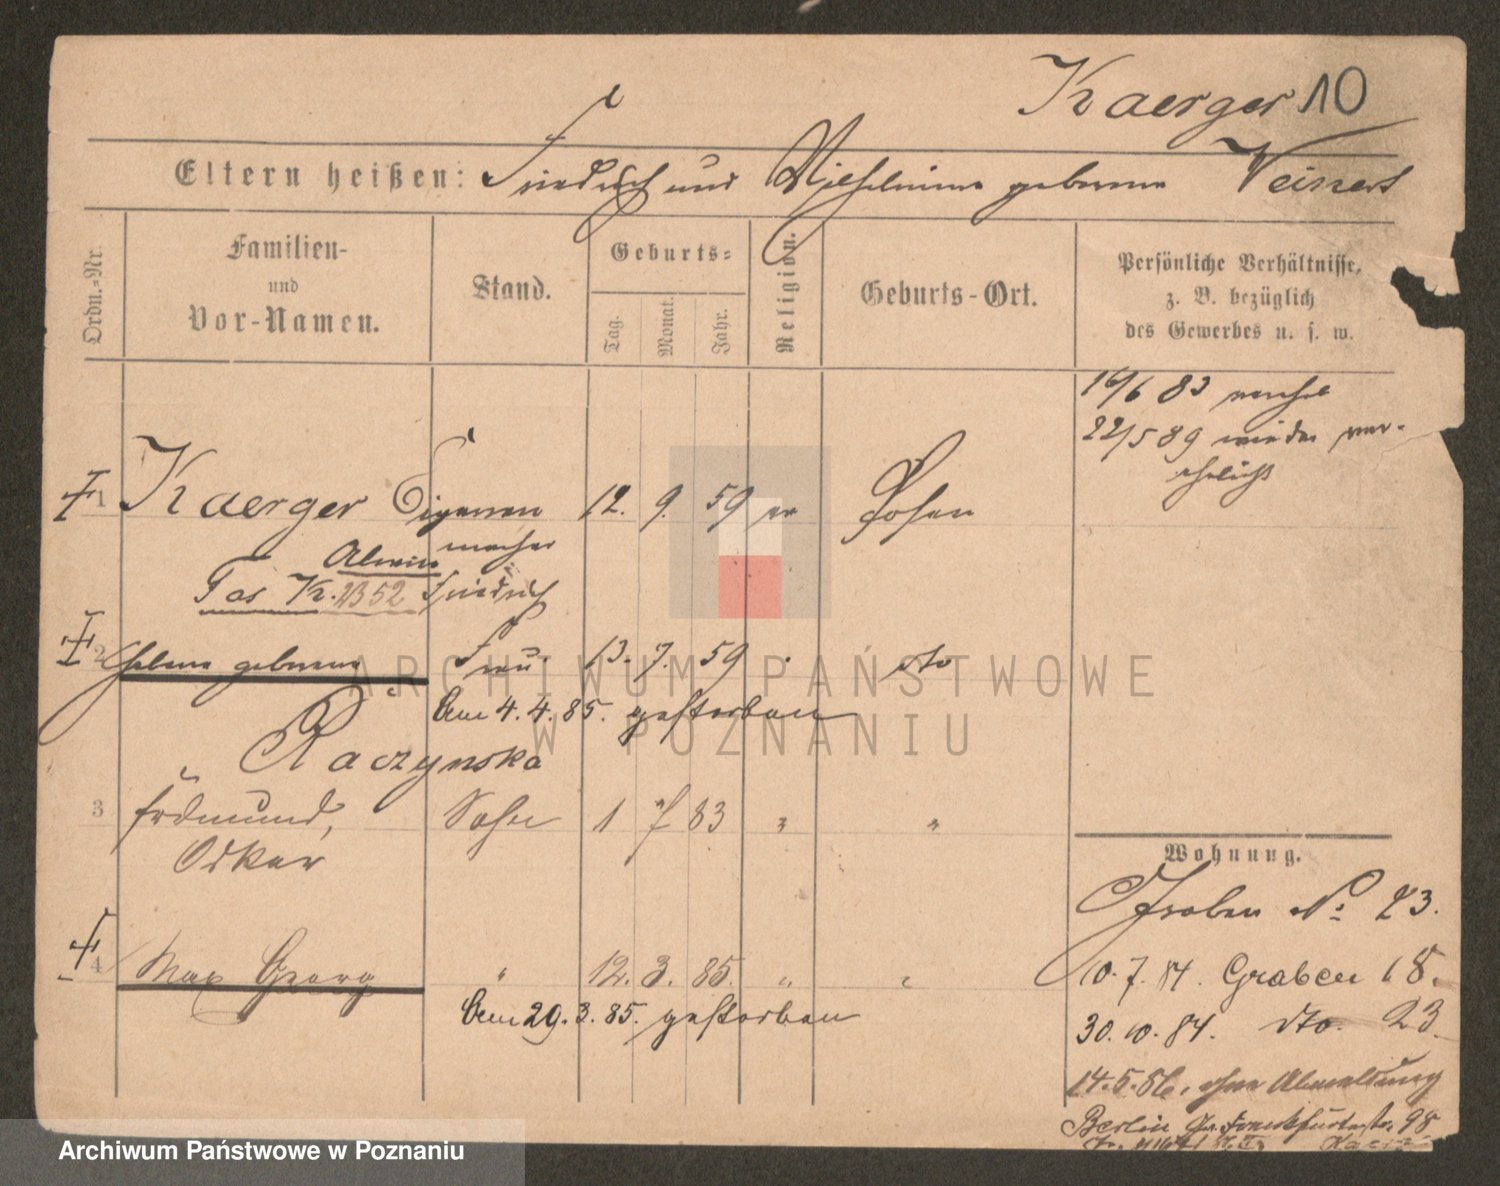 Kaerger 10
Eltern heißen: Friedrich und Wilhelmine geborene Weinert
Ordn.=Nr.
Familien-
und
Vor-Namen.
Stand.
Geburts=
Tag.
Monat.
Jahr.
Religion.
Geburts-Ort.
Persönliche Verhältnisse,
z. B. bezüglich
des Gewerbes u. s. w.
16/6 83
22/5 89 wieder ver-
ehelicht
1 Kaerger Cigarren 12. 9. 59 ev Posen
macher
Alwin
Friedrich
K. 2352
2 Helene geborene Frau 13. 7. 59 dto
Am 4. 4. 85. gestorben
Raczynska
3 Edmund, Sohn 1 7 83 " "
Oskar
4 Max Georg " 12. 3. 85. " "
Am 29. 3. 85. gestorben
Wohnung.
Graben No 23.
10. 7. 84. Graben 18.
30. 10. 84. dto. 23.
14. 5. 86. ohne Abmeldung
Berlin Gr. Frankfurterstr. 98
ARCHIWUM PAŃSTWOWE
W POZNANIU
Archiwum Państwowe w Poznaniu